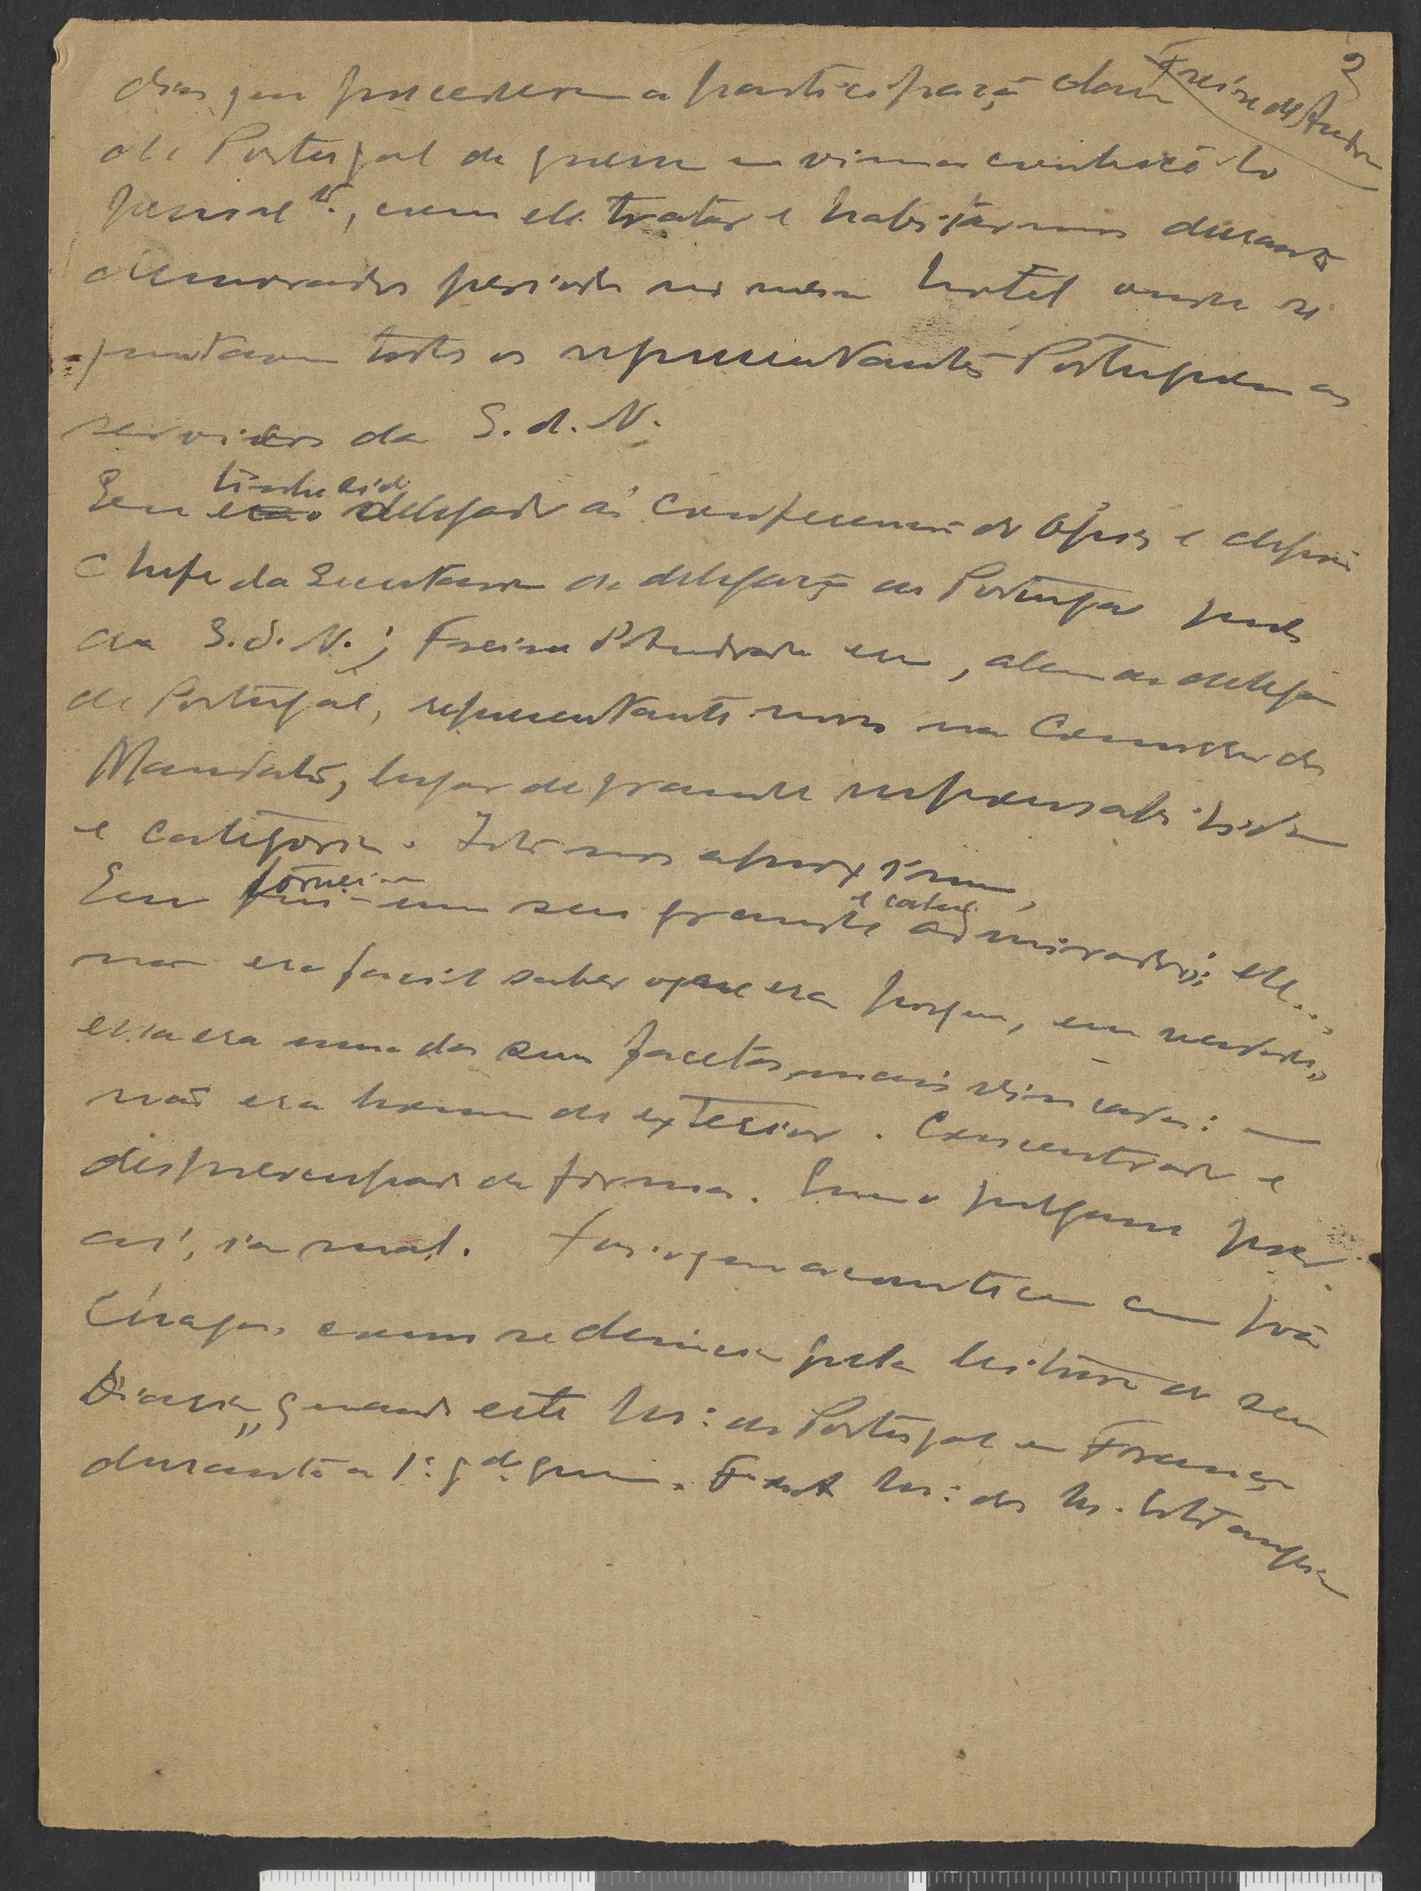 2
Freire d'Andra
dias que precederam a participaçã da
de Portugal da guerra e viemos conhecê-lo
pensoal te., com ele tratar e habitarmos durante
demorados periodos no mesmo hotel onde se
juntavam todos os representantes Portugueses aos
serviços da S. d. N.
tinha sido
Eu era delegado ás Conferencias do Ópio e depois
Chefe da Secretaria da delegaçã de Portugal junto
da S. d. N.; Freire d'Andrade era, alem de delegado
de Portugal, representante nosso na Comissão dos
Mandatos, lugar de grande responsabilidade
e categoria. Isto nos aproximou,
tornei-me
Eu fui um seu grande admirador; ele...,
não era facil saber o que era porque, em verdade,
essa era uma das suas facetas mais vincadas: —
não era homem de exterior. Concentrado e
despreocupado da forma. Quem o julgasse por
aí, ia mal. Foi o que aconteceu com João
Chagas, como se deduz pela leitura do seu
Diario, quando este M: de Portugal em França
durante a 1ª gde guerra. F. d'A M: dos N. Estrangeiros